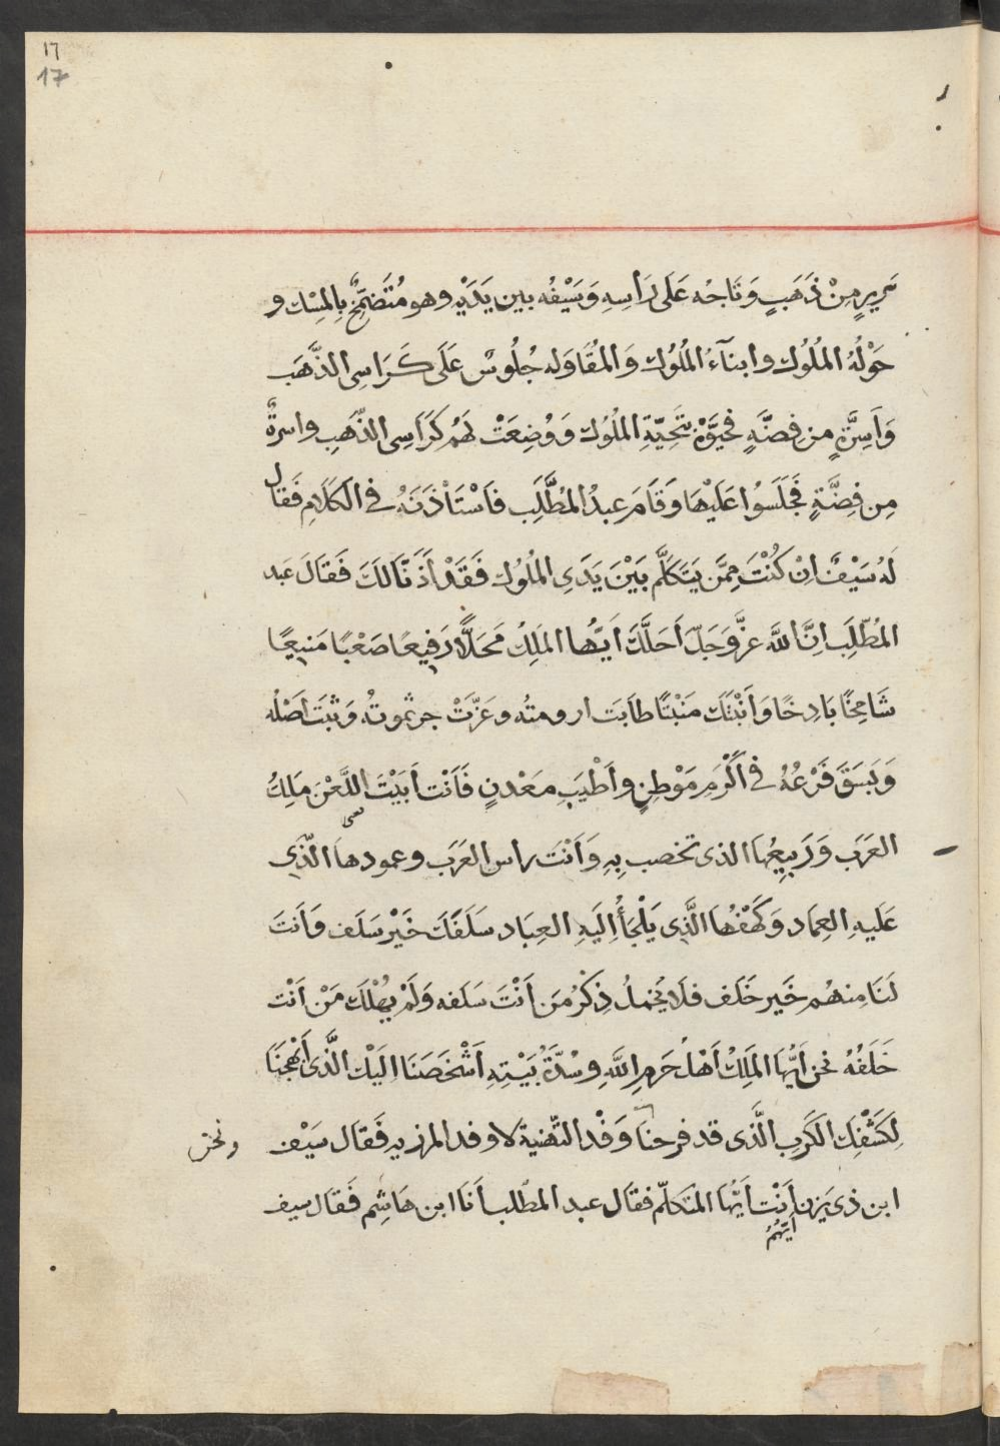 ١٦
17
سَرِيرٍ مِنْ ذَهَبٍ وَتَاجُه عَلَى رَأسِهِ وَسَيْفُه بين يَدَيْهِ وهو مُتَضَمِّخٌ بِالمِسْك و
حَوْلُهُ المُلُوك وابنآءُ المُلُوك وَالمُقَاوَله جُلُوسٌ عَلَى كَرَاسِى الذَّهَب
وَاَسِرَّةٍ من فِضَّهٍ فحَيَّوْهُ بتَحِيّةِ المُلُوك وَوُضِعَتْ لَهُم كَرَاسِى الذّهَبِ واسرةٌ
مِن فِضَّةٍ فَجَلَسُوا عَلَيْهَا وَقَامَ عبدُ المُطَّلَِب فَاسْتَاْذَنَهُ فى الكَلَامِ فَقَال
لَهُ سَيْفٌ اِنْ كُنْتَ مِمَّن يَتَكَلَّم بَيْنَ يَدَىِ المُلُوك فَقَدْ اَذَنَّا لَكَ فَقَالَ عَبد
المُطَّلِب اِنَّ اللَّهَ عزَّ وَجَلّ اَحَلَّكَ اَيُّها المَلِكُ مَحَلًّا رَفِيعًا صَعْبًا مَنِيعًا
شَامِخًا بَاذِخًا وَاَنْبَتَك مَنْبَتًا طَابَت ارومتُه وعَزّتْ جرثموتُه وَثبَتَ اَصْلُه
وَبَسَقَ فَرْعُهُ فى اَكْرَمِ مَوْطِنٍ واَطْيَبِ مَعْدنٍ فَاَنْت اَبَيْتَ اللَّعْنَ مَلِكُ
العَرَب وَرَبِيعُهَا الذى تخصب بِهِ وَاَنْتَ راس العَرَب وعمودها الّذِى
عَلَيهِ العِمَاد وَكَهْفُهَا الَّذِى يَلْجَأُ اِلَيهِ العِبَاد سَلَفُكَ خَيْر سَلَف وَاَنتَ
لَنَا مِنهُم خَير خَلَف فلَا يَخملُ ذِكْرُ مَن اَنْتَ سَلَفه وَلَمْ يهْلك مَنْ اَنْت
خَلَفُهُ نحن اَيُّهَا المَلِكُ اَهْلُ حَرمِ اللَّهِ وسُدّنَةُ بَيْتِهِ اَشْخَصَنَا اليْكَ الَّذى اَبْهَجَنَا
لِكَشْفِكَ الكَرب الَّذى قد فرحنا وَفْد التّهْنية لا وفد المرزيه فَقَال سَيْف
ونحن
ابن ذى يَزن اَنْت اَيُّهَا المتكلّم فقال عبد المطّلب اَنا ابن هَاشِم فَقَال سيف
اَيّهُمُ